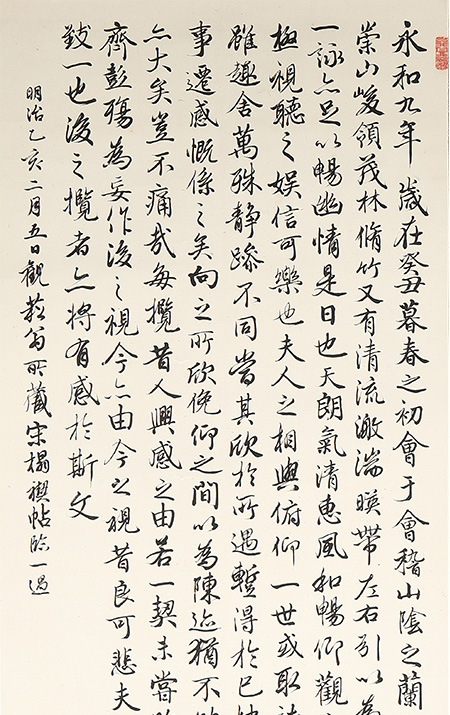 永和九年歲在癸丑暮春之初會于會稽山陰之蘭
崇山峻領茂林脩竹又有清流激湍暎帶左右引以為
一詠亦足以暢幽情是日也天朗氣清惠風和暢仰觀
極視聽之娛信可樂也夫人之相與俯仰一世或取
雖趣舍萬殊靜躁不同當其欣於所遇蹔得於己
事遷感慨係之矣向之所欣俛仰之間以為陳迹猶不
亦大矣豈不痛哉每攬昔人興感之由若一契未嘗
齊彭殤為妄作後之視今亦由今之視昔良可悲夫
致一也後之攬者亦將有感於斯文
明治乙亥二月五日觀菘翁所藏宋搨禊帖臨一過